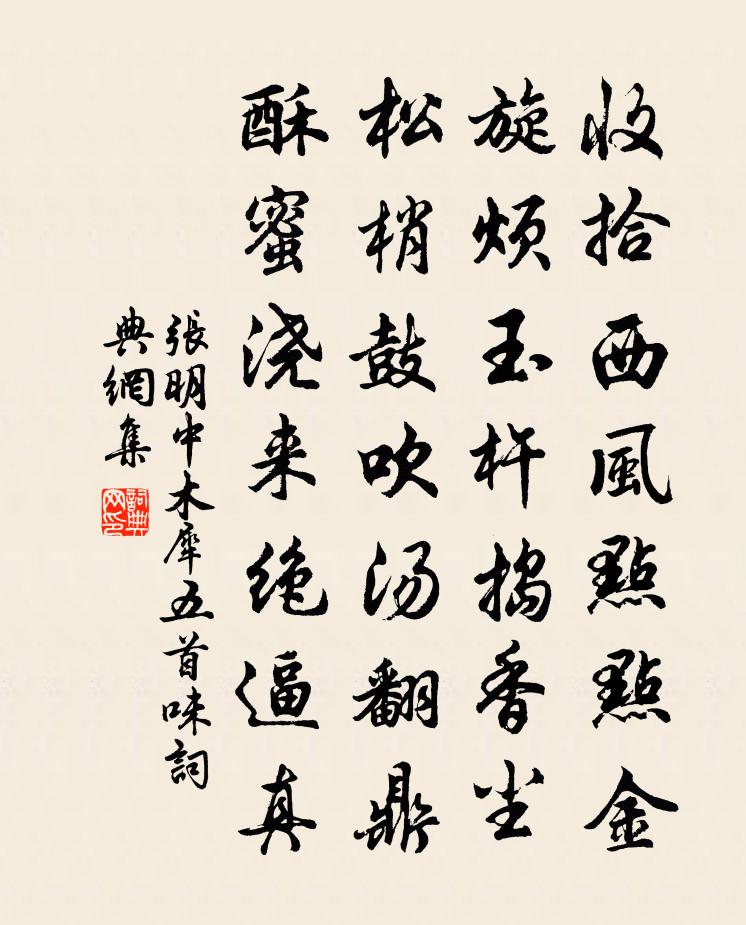 收拾西風點點金
旋烦玉杵捣香尘
松梢鼓吹汤翻鼎
酥蜜浇来绝逼真
張明中木犀五首味詞
典網集
詞典网印